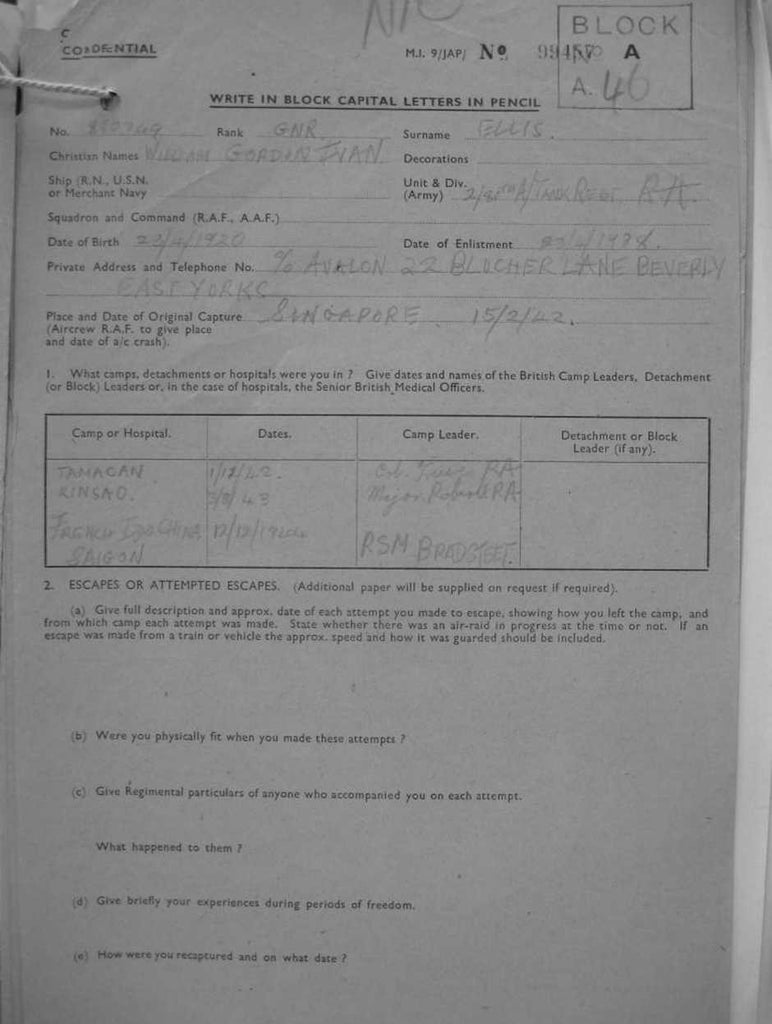 NIL
C
CONFIDENTIAL
M.I. 9/JAP/ No
BLOCK
A
A. 46
WRITE IN BLOCK CAPITAL LETTERS IN PENCIL
No. Rank GNR. Surname ELLIS.
Christian Names WILLIAM GORDON IVAN Decorations
Ship (R.N., U.S.N.
or Merchant Navy
Unit & Div.
(Army) A/TANK REGT RA.
Squadron and Command (R.A.F., A.A.F.)
Date of Birth 22/4/1920 Date of Enlistment
Private Address and Telephone No. C/O AVALON 22 BLUCHER LANE BEVERLY
EAST YORKS
Place and Date of Original Capture SINGAPORE 15/2/42.
(Aircrew R.A.F. to give place
and date of a/c crash).
1. What camps, detachments or hospitals were you in ? Give dates and names of the British Camp Leaders, Detachment
(or Block) Leaders or, in the case of hospitals, the Senior British Medical Officers.
Camp or Hospital. Dates. Camp Leader. Detachment or Block
Leader (if any).
TAMACAN 1/12/42. Col. RA
KINSAO. 43 Major RA
FRENCH INDO CHINA
SAIGON RSM BRADSTEET.
2. ESCAPES OR ATTEMPTED ESCAPES. (Additional paper will be supplied on request if required).
(a) Give full description and approx. date of each attempt you made to escape, showing how you left the camp, and
from which camp each attempt was made. State whether there was an air-raid in progress at the time or not. If an
escape was made from a train or vehicle the approx. speed and how it was guarded should be included.
(b) Were you physically fit when you made these attempts ?
(c) Give Regimental particulars of anyone who accompanied you on each attempt.
What happened to them ?
(d) Give briefly your experiences during periods of freedom.
(e) How were you recaptured and on what date ?